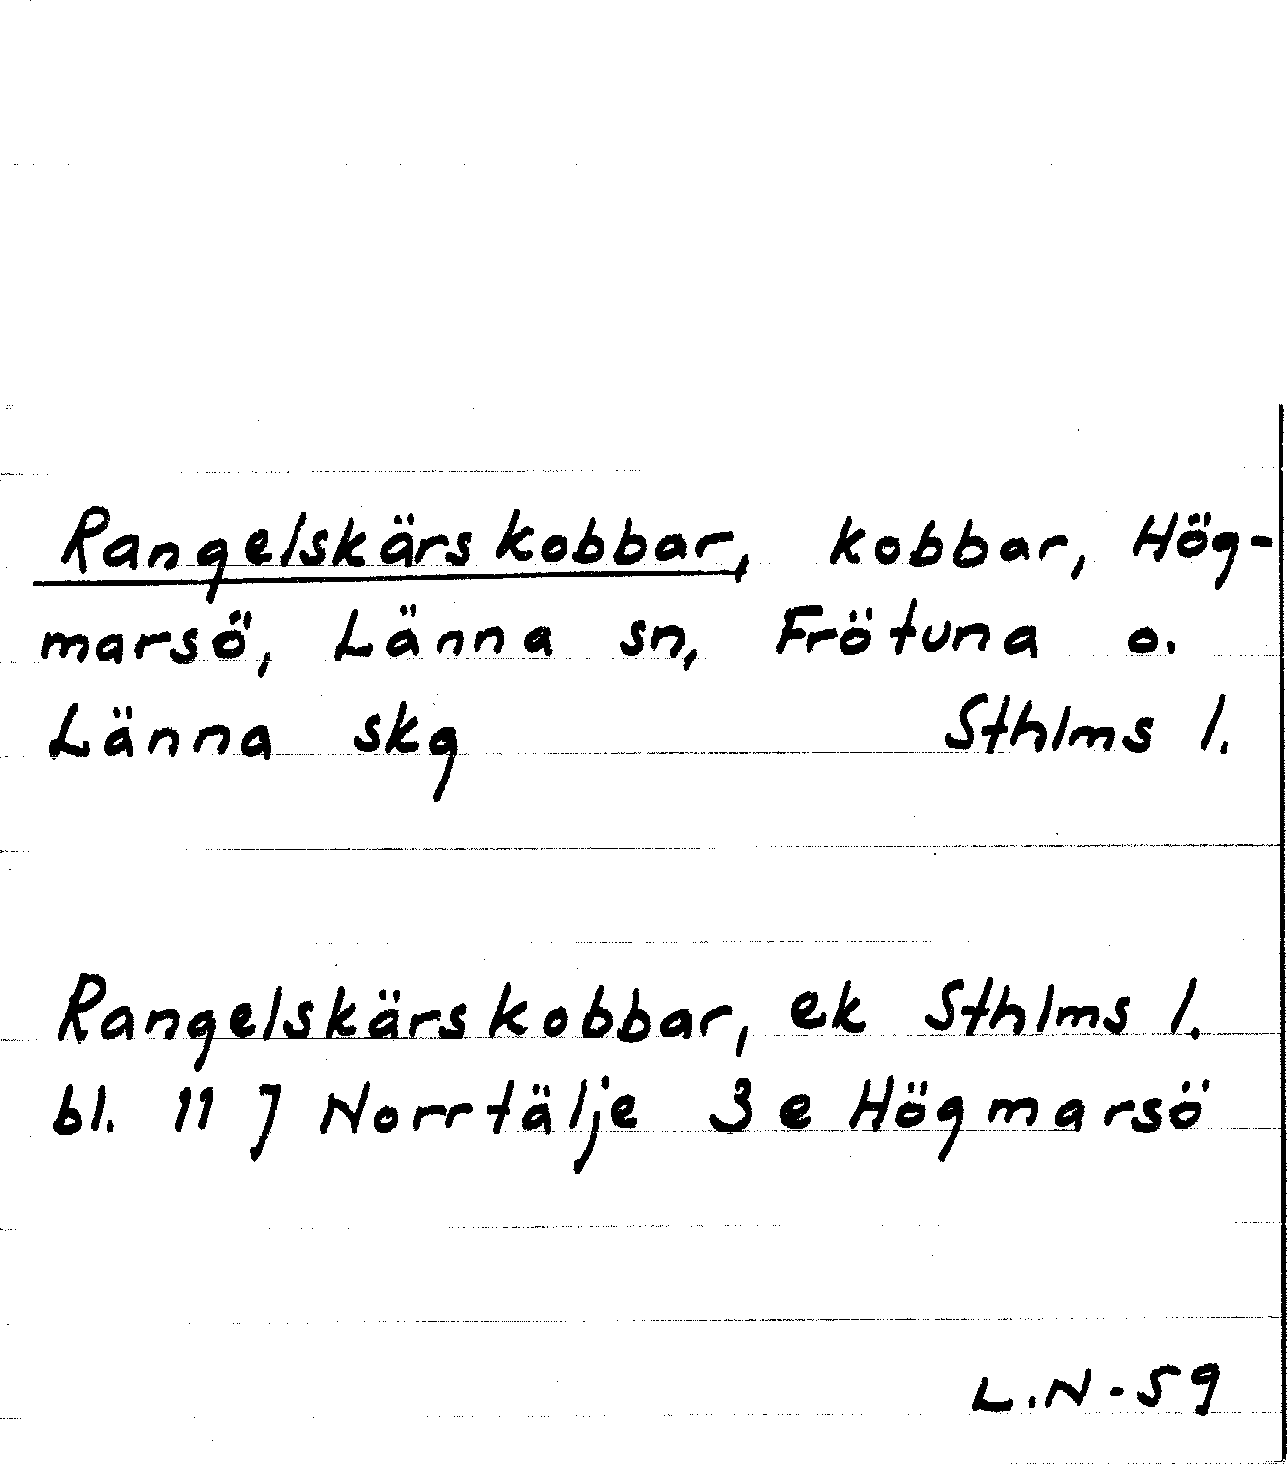 Rangelskärskobbar, kobbar, Hög-
marsö, Länna sn, Frötuna o.
Länna skg Sthlms l.
Rangelskärskobbar, ek Sthlms l.
bl. 11 J Norrtälje 3 e Högmarsö
L.N-59